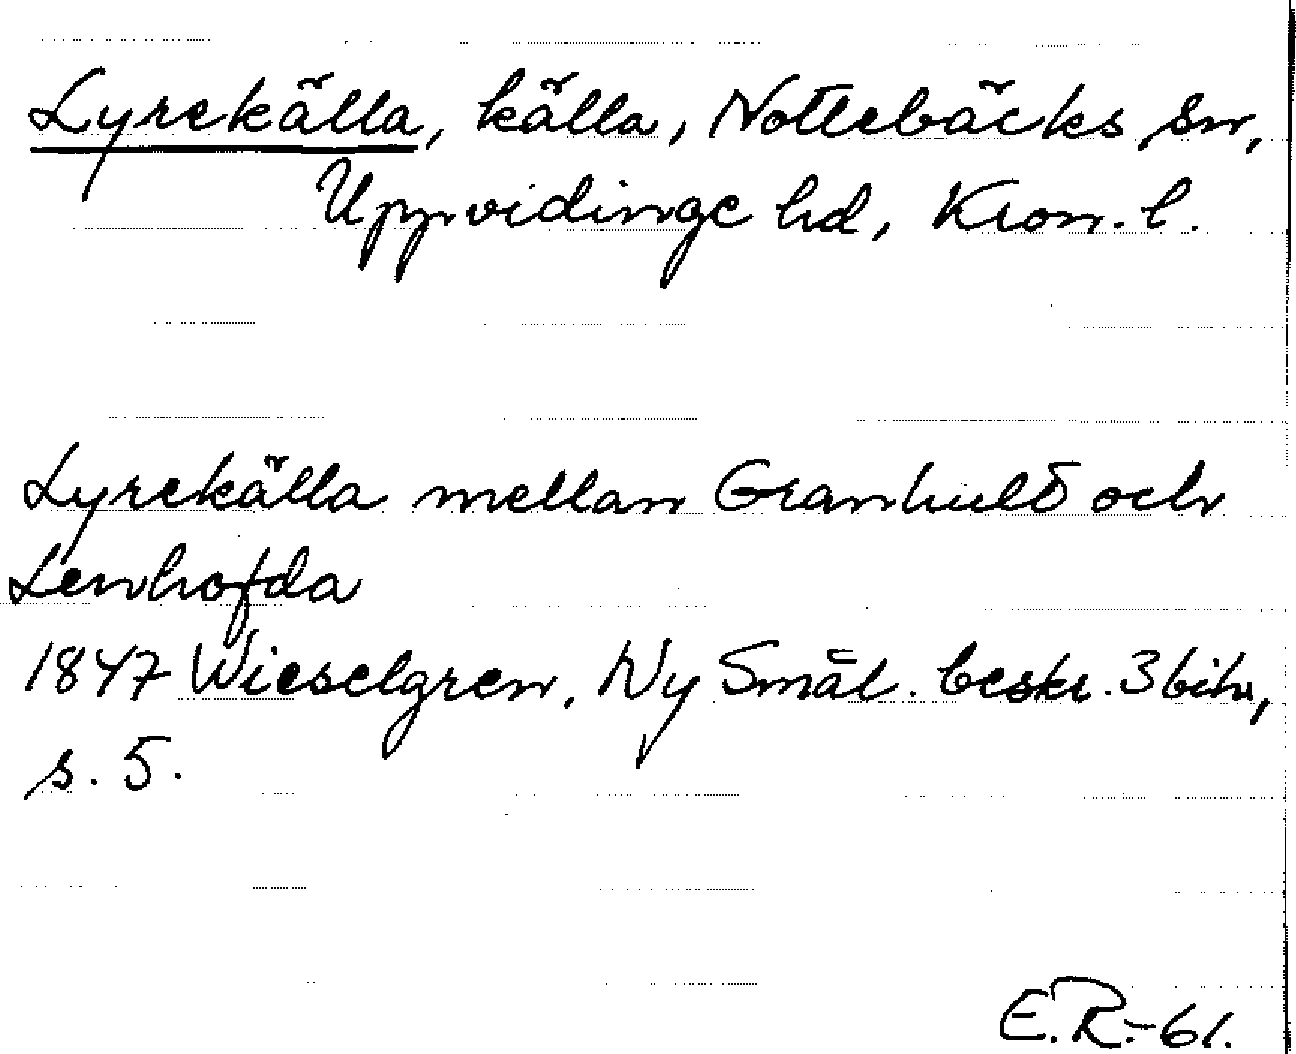 Lyrekälla, källa, Nottebäcks sn,
Uppvidinge hd, Kron. l.
Lyrekälla mellan Granhult och
Lenhofda
1847 Wieselgren, Ny Smål. beskr. 3 bih,
s. 5.
E.R.-61.